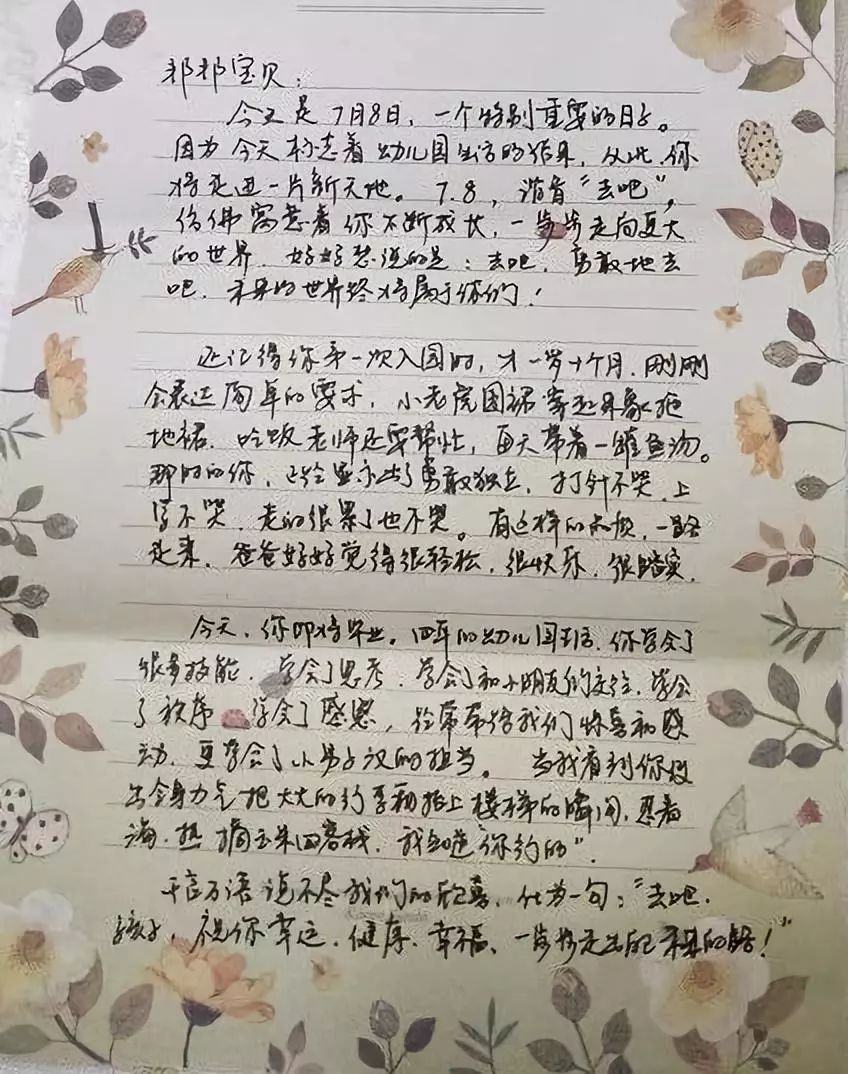 祁祁宝贝：
今天是7月8日，一个特别重要的日子。
因为今天标志着幼儿园生活的结束，从此，你
将走进一片新天地。7.8，谐音“去吧”，
仿佛寓意着你不断成长，一步步走向更大
的世界。好好想说的是：去吧，勇敢地去
吧，未来的世界终将属于你们！
还记得你第一次入园时，才一岁十个月，刚刚
会表达简单的要求，小老虎围裙穿起来象拖
地裙，吃饭老师还要帮忙，每天带着一罐鱼汤。
那时的你，已经显示出了勇敢独立，打针不哭，上
学不哭，走的很累了也不哭。有这样的品质，一路
走来，爸爸好好觉得很轻松，很快乐，很踏实。
今天，你即将毕业。四年的幼儿园生活，你学会了
很多技能，学会了思考，学会了和小朋友们交往，学会
了秩序，学会了感恩，经常带给我们惊喜和感
动，更学会了小男子汉的担当。当我看到你使
出全身力气把大大的行李箱抬上楼梯的瞬间，忍着
热摘玉米
千言万语说不尽我们的欣喜，化为一句：“去吧，
孩子，祝你幸运、健康、幸福，一步步走出自己未来的路！”